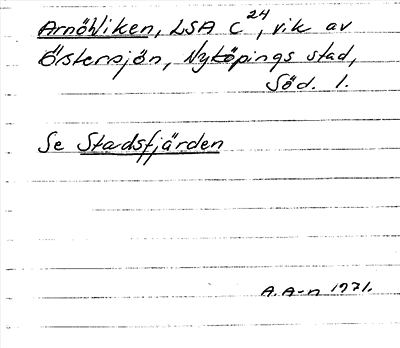 Arnöviken, LSA C 24, vik av
Östersjön, Nyköpings stad,
Söd. l.
Se Stadsfjärden
A. A-n 1971.